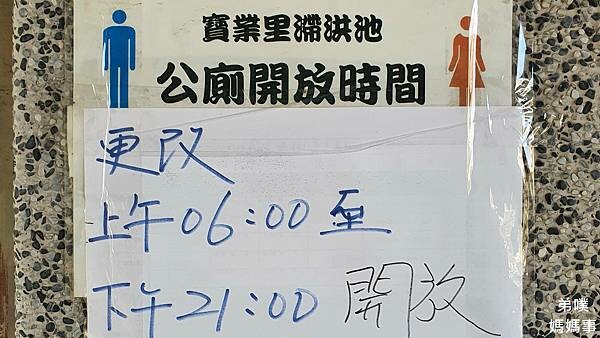 寶業里滯洪池
公廁開放時間
更改
上午06:00至
下午21:00 開放
弟噗
媽媽事